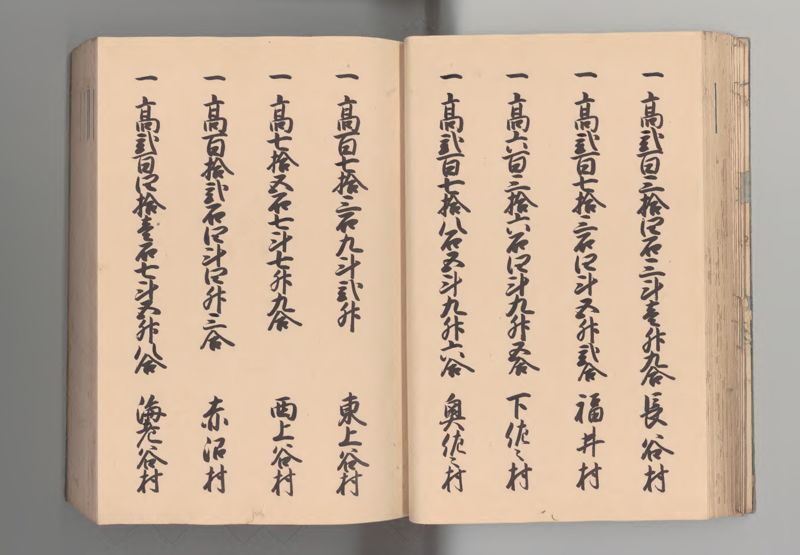 一 高弐百三拾四石三斗壱升九合 長谷村
一 高弐百七拾三石四斗五升弐合 福井村
一 高六百三拾六石四斗九升五合 下佐々村
一 高弐百七拾八石五斗九升六合 奥佐々村
一 高百七拾三石九斗弐升 東上谷村
一 高七拾五石七斗七升九合 西上谷村
一 高百拾弐石四斗四升三合 赤沼村
一 高弐百四拾壱石七斗五升八合 海老谷村